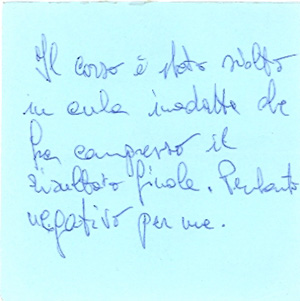 Il corso è stato svolto
in aula inadatta che
ha compresso il
risultato finale. Pertanto
negativo per me.